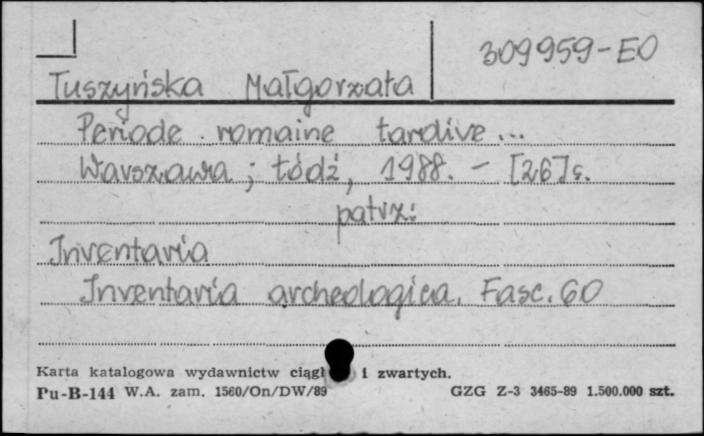 309959-EO
Tuszyńska Małgorzata
Periode romaine tardive...
Warszawa ; Łódź, 1988. - [26]s.
patrz:
Inventaria
Inventaria archeologica. Fasc. 60
Karta katalogowa wydawnictw ciągł i zwartych.
Pu-B-144 W.A. zam. 1560/On/DW/89 GZG Z-3 3465-89 1.500.000 szt.